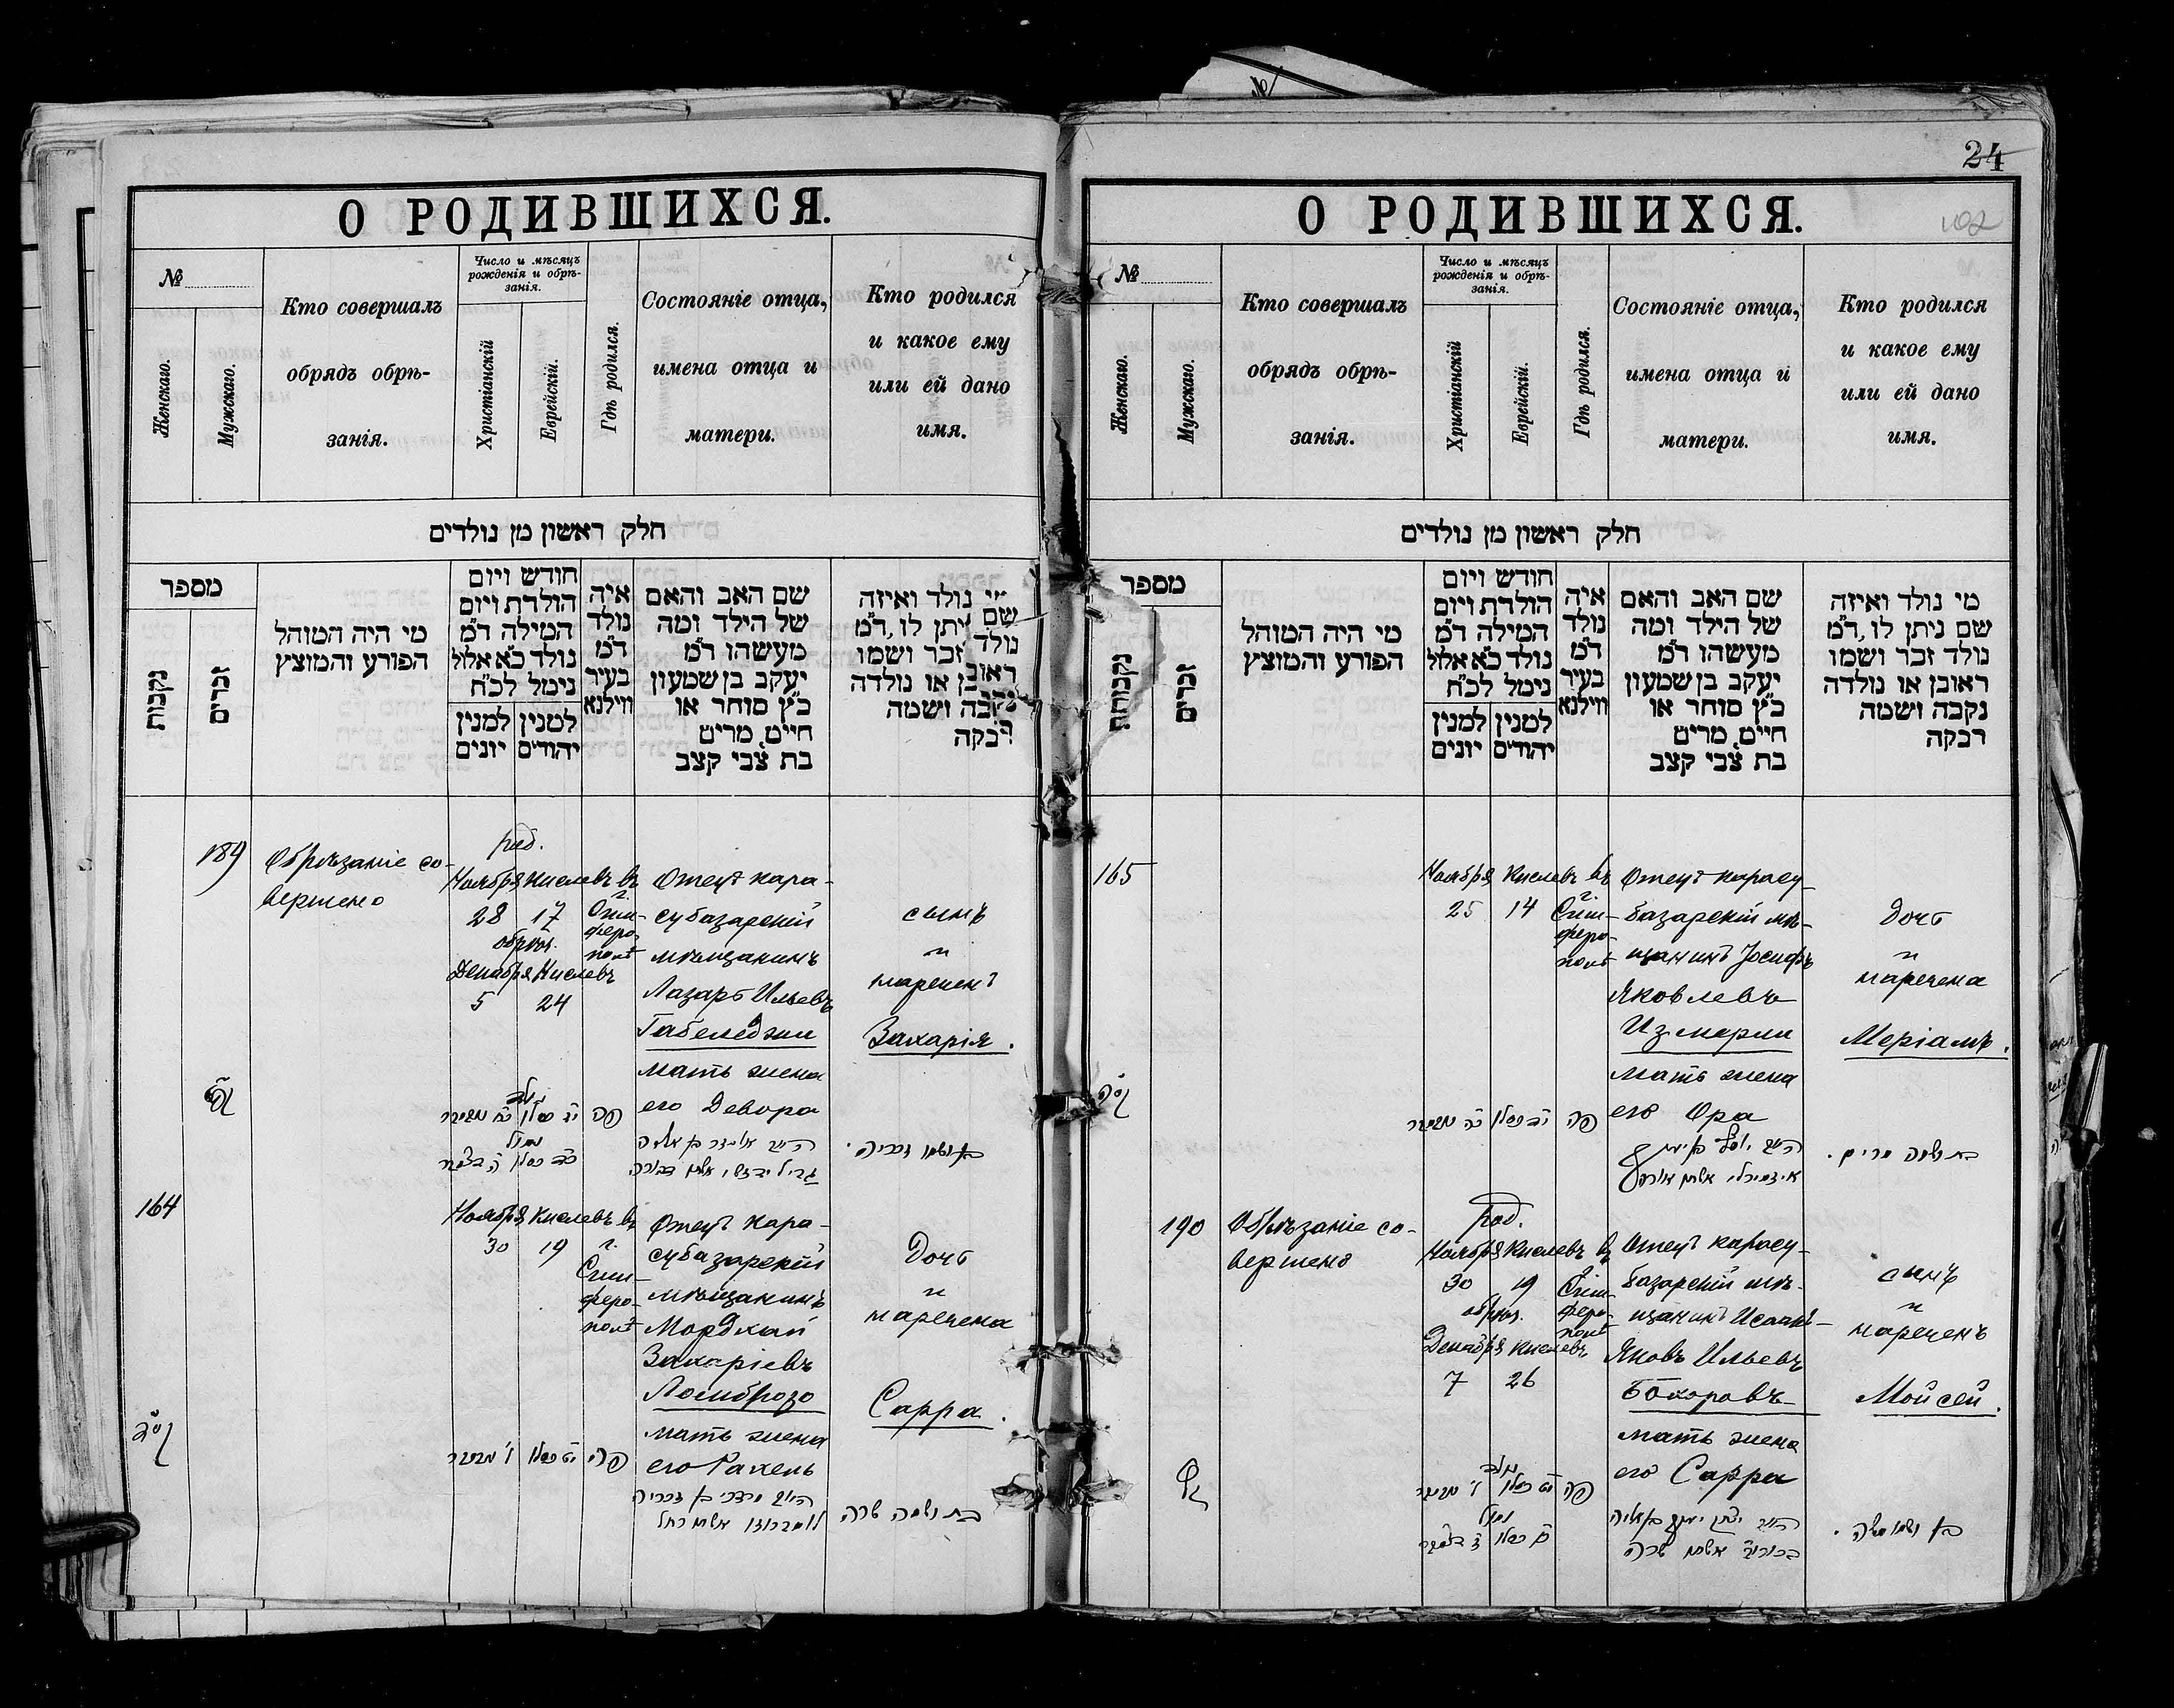 24
О РОДИВШИХСЯ.
№
Женскаго.
Мужскаго.
Кто совершалъ
обрядъ обрѣ-
занія.
Число и мѣсяцъ
рожденія и обрѣ-
занія.
Христіанскій
Еврейскій.
Гдѣ родился.
Состояніе отца,
имена отца и
матери.
Кто родился
и какое ему
или ей дано
имя.
חלק ראשון מן נולדים
מספר
נקבות
זכרים
מי היה המוהל
הפורע והמוצץ
חודש ויום
הולדת ויום
המילה ד״מ
נולד כ״א אלול
נימל לכ״ח
למנין יהודים
למנין יונים
איה
נולד
ד״מ
בעיר
ווילנא
שם האב והאם
של הילד ומה
מעשהו ד״מ
יעקב בן שמעון
כ״ץ סוחר או
חייט, מרים
בת צבי קצב
מי נולד ואיזה
שם ניתן לו, ד״מ
נולד זכר ושמו
ראובן או נולדה
נקבה ושמה
רבקה
189
Обрѣзаніе со-
вершено
род.
Ноября Кислевъ
28 17
обрѣз.
Декабря Кислевъ
5 24
въ
г.
Сим-
феро-
полѣ
Отецъ кара-
субазарскій
мѣщанинъ
Лазарь Ильевъ
Габеледжи
мать жена
его Девора
сынъ
и
нареченъ
Захарія.
פה
בן ושמו זכריה.
164
Ноября Кислевъ
30 19
въ
г.
Сим-
феро-
полѣ
Отецъ кара-
субазарскій
мѣщанинъ
Мордхай
Захаріевъ
Ломброзо
мать жена
его Рахель
Дочь
и
наречена
Сарра.
פה
בת ושמה שרה
О РОДИВШИХСЯ.
102
№
Женскаго.
Мужскаго.
Кто совершалъ
обрядъ обрѣ-
занія.
Число и мѣсяцъ
рожденія и обрѣ-
занія.
Христіанскій
Еврейскій.
Гдѣ родился.
Состояніе отца,
имена отца и
матери.
Кто родился
и какое ему
или ей дано
имя.
חלק ראשון מן נולדים
מספר
נקבות
זכרים
מי היה המוהל
הפורע והמוצץ
חודש ויום
הולדת ויום
המילה ד״מ
נולד כ״א אלול
נימל לכ״ח
למנין יהודים
למנין יונים
איה
נולד
ד״מ
בעיר
ווילנא
שם האב והאם
של הילד ומה
מעשהו ד״מ
יעקב בן שמעון
כ״ץ סוחר או
חייט, מרים
בת צבי קצב
מי נולד ואיזה
שם ניתן לו, ד״מ
נולד זכר ושמו
ראובן או נולדה
נקבה ושמה
רבקה
165
Ноября Кислевъ
25 14
въ
г.
Сим-
феро-
полѣ
Отецъ карасу-
базарскій мѣ-
щанинъ Іосифъ
Яковлевъ
Измерли
мать жена
его Ора
Дочь
и
наречена
Меріамъ.
פה
בת ושמה מרים.
190
Обрѣзаніе со-
вершено
род.
Ноября Кислевъ
30 19
обрѣз.
Декабря Кислевъ
7 26
въ
г.
Сим-
феро-
полѣ
Отецъ карасу-
базарскій мѣ-
щанинъ Исаакъ-
Яковъ Ильевъ
Бохоровъ
мать жена
его Сарра
сынъ
и
нареченъ
Мойсей.
פה
בן ושמו משה.